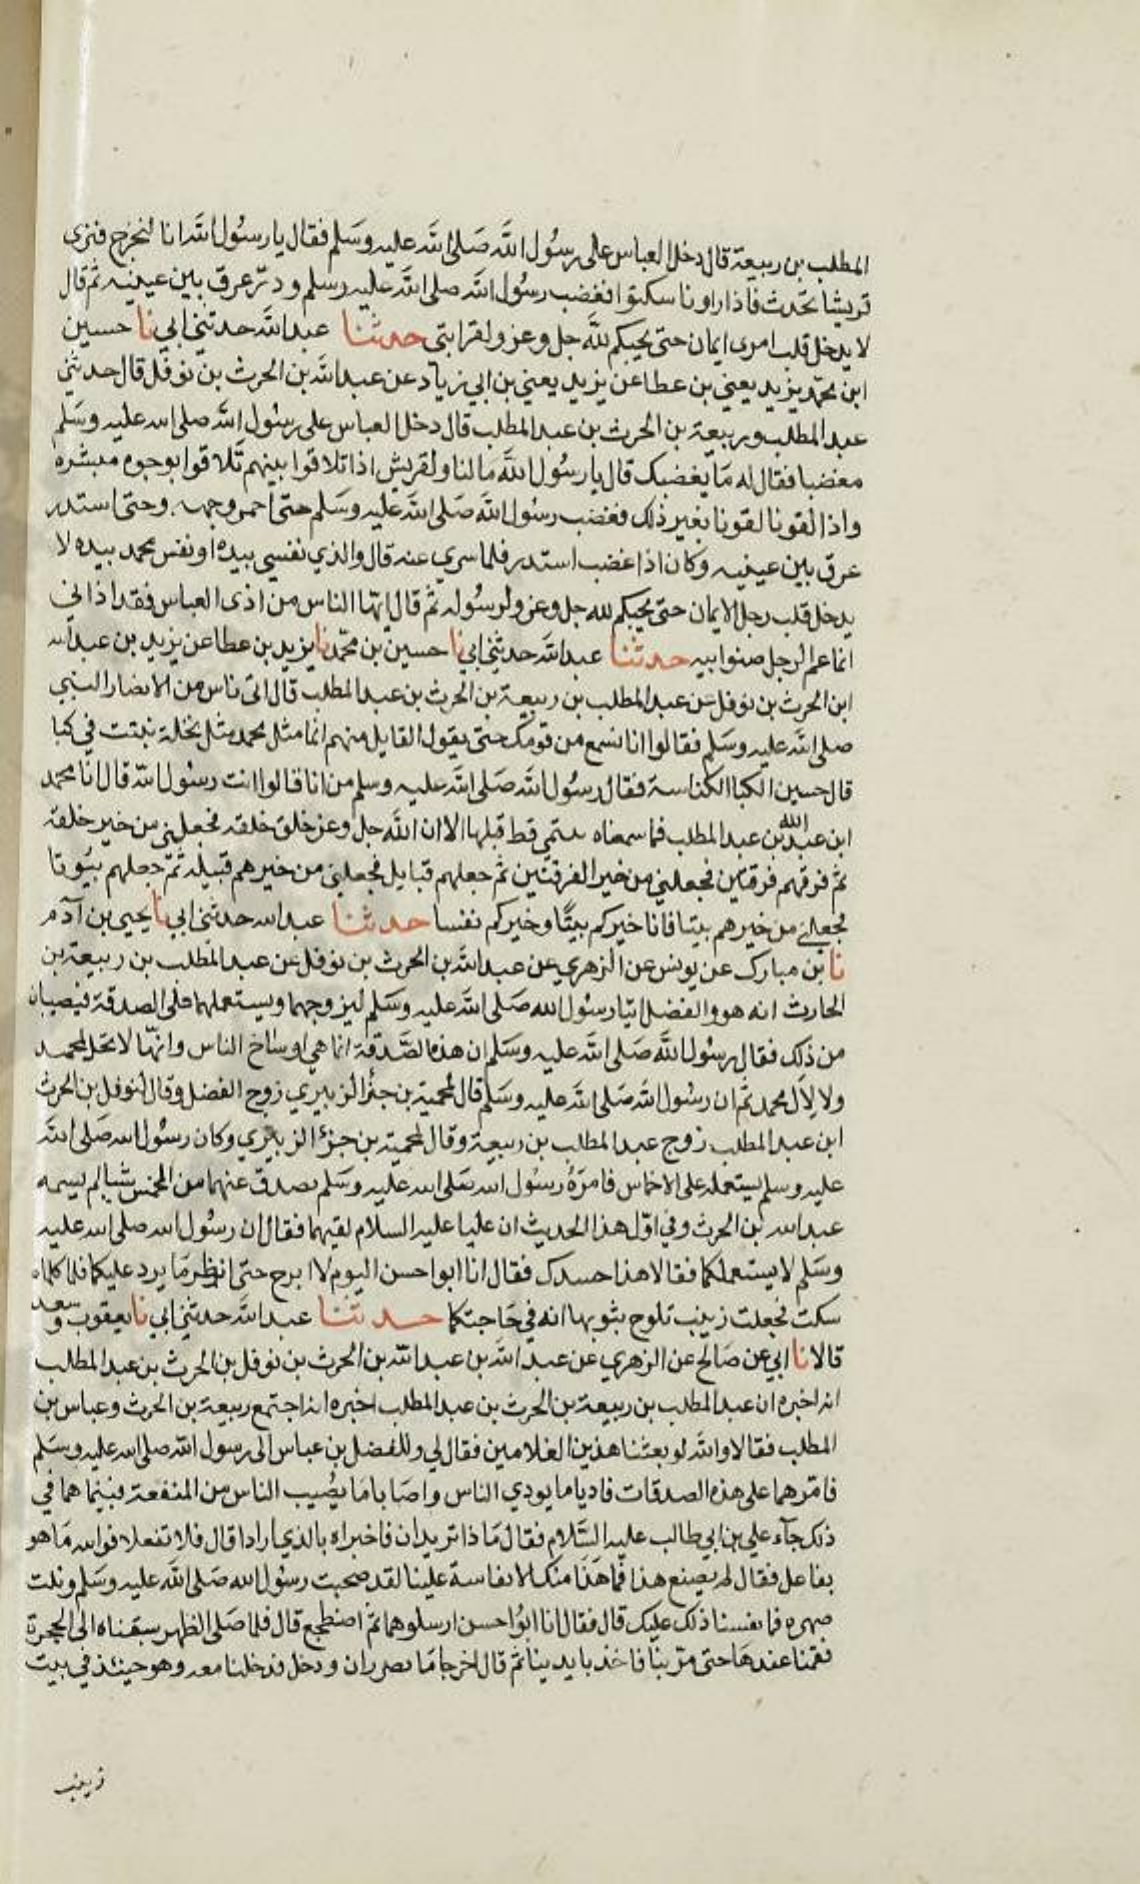 المطلب بن ربيعة قال دخل العباس على رسول الله صلى الله عليه وسلم فقال يا رسول الله انا لنخرج فنرى
قريشا تحدث فاذا راونا سكتوا فغضب رسول الله صلى الله عليه وسلم ودر عرق بين عينيه ثم قال
لا يدخل قلب امرئ ايمان حتى يحبكم لله جل وعز ولقرابتى حدثنا عبد الله حدثني ابي نا حسين
ابن محمد يزيد يعني بن عطا عن يزيد يعني بن ابي زياد عن عبد الله بن الحرث بن نوفل قال حدثني
عبد المطلب وربيعة بن الحرث بن عبد المطلب قال دخل العباس على رسول الله صلى الله عليه وسلم
مغضبا فقال له ما يغضبك قال يا رسول الله ما لنا ولقريش اذا تلاقوا بينهم تلاقوا بوجوه مبشرة
واذا لقونا لقونا بغير ذلك فغضب رسول الله صلى الله عليه وسلم حتى احمر وجهه وحتى استدر
عرق بين عينيه وكان اذا غضب استدر فلما سري عنه قال والذي نفسي بيده او نفس محمد بيده لا
يدخل قلب رجل الايمان حتى يحبكم لله جل وعز ولرسوله ثم قال ايها الناس من اذى العباس فقد اذاني
انما عم الرجل صنو ابيه حدثنا عبد الله حدثني ابي نا حسين بن محمد نا يزيد بن عطا عن يزيد بن عبد الله
ابن الحرث بن نوفل عن عبد المطلب بن ربيعة بن الحرث بن عبد المطلب قال اتى ناس من الانصار النبي
صلى الله عليه وسلم فقالوا انا نسمع من قومك حتى يقول القايل منهم انما مثل محمد مثل نخلة نبتت في كبا
قال حسين الكبا الكناسة فقال رسول الله صلى الله عليه وسلم من انا قالوا انت رسول الله قال انا محمد
ابن عبد الله بن عبد المطلب فما سمعناه ينتمي قط قبلها الا ان الله جل وعز خلق خلقه فجعلني من خير خلقه
ثم فرقهم فرقتين فجعلني من خير الفرقتين ثم جعلهم قبايل فجعلني من خيرهم قبيلة ثم جعلهم بيوتا
فجعلني من خيرهم بيتا فانا خيركم بيتا وخيركم نفسا حدثنا عبد الله حدثني ابي نا يحيى بن آدم
نا بن مبارك عن يونس عن الزهري عن عبد الله بن الحرث بن نوفل عن عبد المطلب بن ربيعة بن
الحارث انه هو والفضل اتيا رسول الله صلى الله عليه وسلم ليزوجهما ويستعملهما على الصدقة فيصيبان
من ذلك فقال رسول الله صلى الله عليه وسلم ان هذه الصدقة انما هي اوساخ الناس وانها لا تحل لمحمد
ولا لال محمد ثم ان رسول الله صلى الله عليه وسلم قال لمحمية بن جزء الزبيري زوج الفضل وقال لنوفل بن الحرث
ابن عبد المطلب زوج عبد المطلب بن ربيعة وقال لمحمية بن جزء الزبيري وكان رسول الله صلى الله
عليه وسلم يستعمله على الاخماس فامره رسول الله صلى الله عليه وسلم يصدق عنهما من الخمس شيا لم يسمه
عبد الله بن الحرث وفي اول هذا الحديث ان عليا عليه السلام لقيهما فقال ان رسول الله صلى الله عليه
وسلم لا يستعملكما فقالا هذا حسدك فقال انا ابوا حسن اليوم لا ابرح حتى انظر ما يرد عليكما فلما كلماه
سكت فجعلت زينب تلوح بثوبها انه في حاجتكما حدثنا عبد الله حدثني ابي نا يعقوب وسعد
قالا نا ابي عن صالح عن الزهري عن عبد الله بن عبد الله بن الحرث بن نوفل بن الحرث بن عبد المطلب
انه اخبره ان عبد المطلب بن ربيعة بن الحرث بن عبد المطلب اخبره انه اجتمع ربيعة بن الحرث وعباس بن
المطلب فقالا والله لو بعثنا هذين الغلامين فقال لي وللفضل بن عباس الى رسول الله صلى الله عليه وسلم
فامرهما على هذه الصدقات فاديا ما يودي الناس واصابا ما يصيب الناس من المنفعة فبينما هما في
ذلك جآء علي بن ابي طالب عليه السلام فقال ماذا تريدان فاخبراه بالذي ارادا قال فلا تفعلا فوالله ما هو
بفاعل فقال لم يصنع هذا فما هذا منك الا نفاسة علينا لقد صحبت رسول الله صلى الله عليه وسلم ونلت
صهره فما نفسنا ذلك عليك قال فقال انا ابوا حسن ارسلوهما ثم اضطجع قال فلما صلى الظهر سبقناه الى الحجرة
فقمنا عندها حتى مر بنا فاخذ بايدينا ثم قال اخرجا ما تصرران ودخل فدخلنا معه وهو حينئذ في بيت
زينب